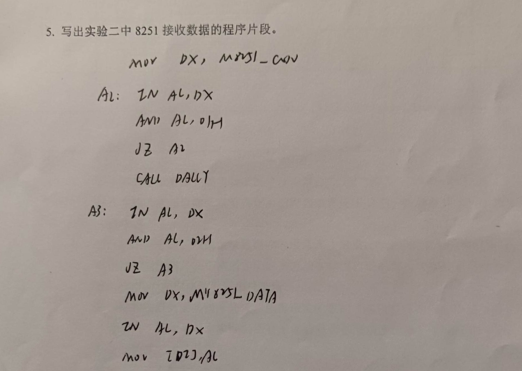 5. 写出实验二中 8251 接收数据的程序片段。
MOV DX, M8251_CON
A2: IN AL, DX
AND AL, 01H
JZ A2
CALL DALLY
A3: IN AL, DX
AND AL, 02H
JZ A3
MOV DX, M8251_DATA
IN AL, DX
MOV [DI], AL